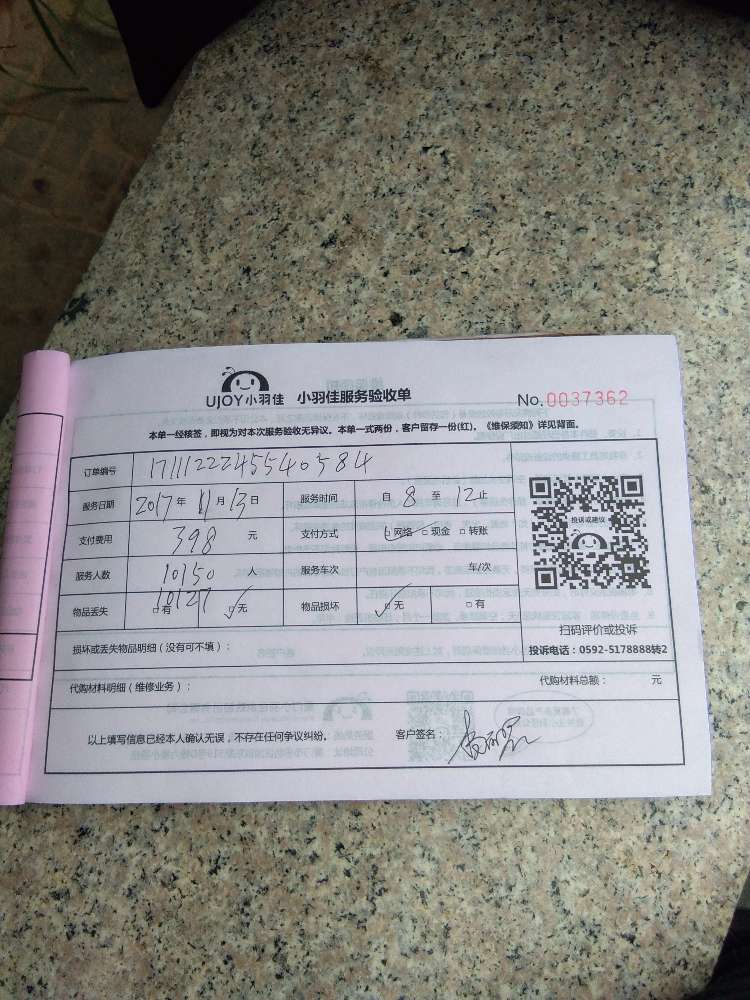 UJOY小羽佳 小羽佳服务验收单 No.0037362
本单一经核签，即视为对本次服务验收无异议。本单一式两份，客户留存一份(红)。《维保须知》详见背面。
订单编号 17111222455540584
服务日期 2017年 11月 13日 服务时间 自 8 至 12止
支付费用 398 元 支付方式 网络 现金 转账
服务人数 10150 人 服务车次 车/次
10127
物品丢失 有 无 物品损坏 无 有
投诉或建议
扫码评价或投诉
损坏或丢失物品明细（没有可不填）： 投诉电话：0592-5178888转2
代购材料明细（维修业务）： 代购材料总额： 元
以上填写信息已经本人确认无误，不存在任何争议纠纷。 客户签名：